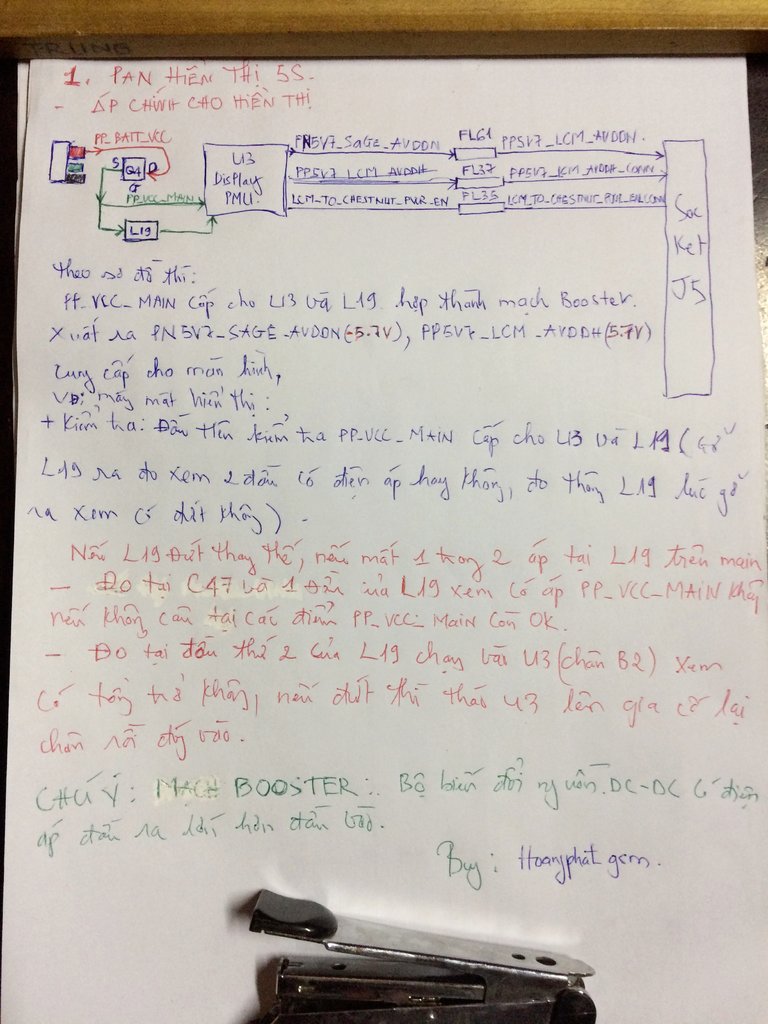 TRUNG
1. PAN HIỂN THỊ 5S.
- ÁP CHÍNH CHO HIỂN THỊ
PP_BATT_VCC
S Q4 D
G
PP_VCC_MAIN
L19
U3
Display
PMU.
PN5V7_SAGE_AVDDN FL61 PP5V7_LCM_AVDDN.
PP5V7_LCM_AVDDH FL37 PP5V7_LCM_AVDDH_CONN
LCM_TO_CHESTNUT_PWR_EN FL35 LCM_TO_CHESTNUT_PWR_EN_CONN
Soc
Ket
J5
Theo sơ đồ thì:
PP_VCC_MAIN cấp cho U3 và L19 hợp thành mạch Booster.
Xuất ra PN5V7_SAGE_AVDDN(-5.7V), PP5V7_LCM_AVDDH(5.7V)
cung cấp cho màn hình,
Với máy mất hiển thị:
+ Kiểm tra: Đầu tiên kiểm tra PP_VCC_MAIN cấp cho U3 và L19 (gỡ
L19 ra đo xem 2 đầu có điện áp hay không, đo thông L19 lúc gỡ
ra xem có đứt không).
Nếu L19 đứt thay thế, nếu mất 1 trong 2 áp tại L19 trên main
- Đo tại C47 và 1 đầu của L19 xem có áp PP_VCC_MAIN không
nếu không câu tại các điểm PP_VCC_MAIN còn OK.
- Đo tại đầu thứ 2 của L19 chạy vào U3 (chân B2) xem
có tổng trở không, nếu đứt thì tháo U3 lên gia cố lại
chân rồi đóng vào.
CHÚ Ý: MẠCH BOOSTER: Bộ biến đổi nguồn DC-DC có điện
áp đầu ra lớn hơn đầu vào.
Buy: Hoangphat gsm.